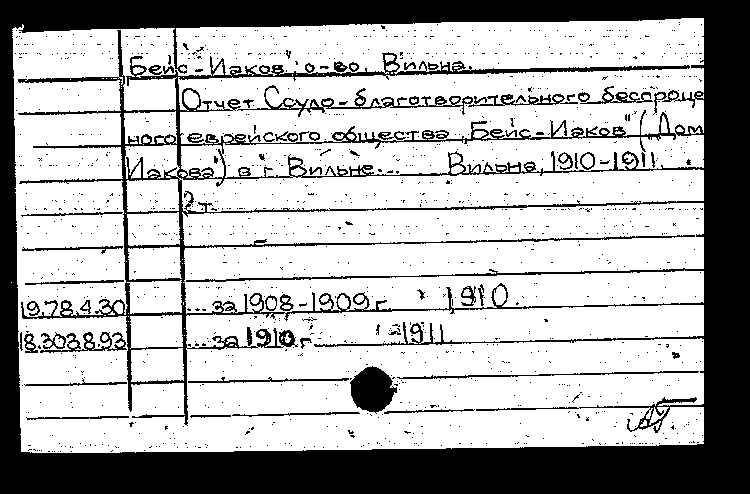 "Бейс-Иаков", о-во. Вильна.
Отчет Ссудо-благотворительного беспроце
ного еврейского общества „Бейс-Иаков" („Дом
Иакова") в г. Вильне... Вильна, 1910-1911.
2 т.
19.78.4.30 ... за 1908-1909 г. 1910.
18.303.8.93 ... за 1910 г. 1911